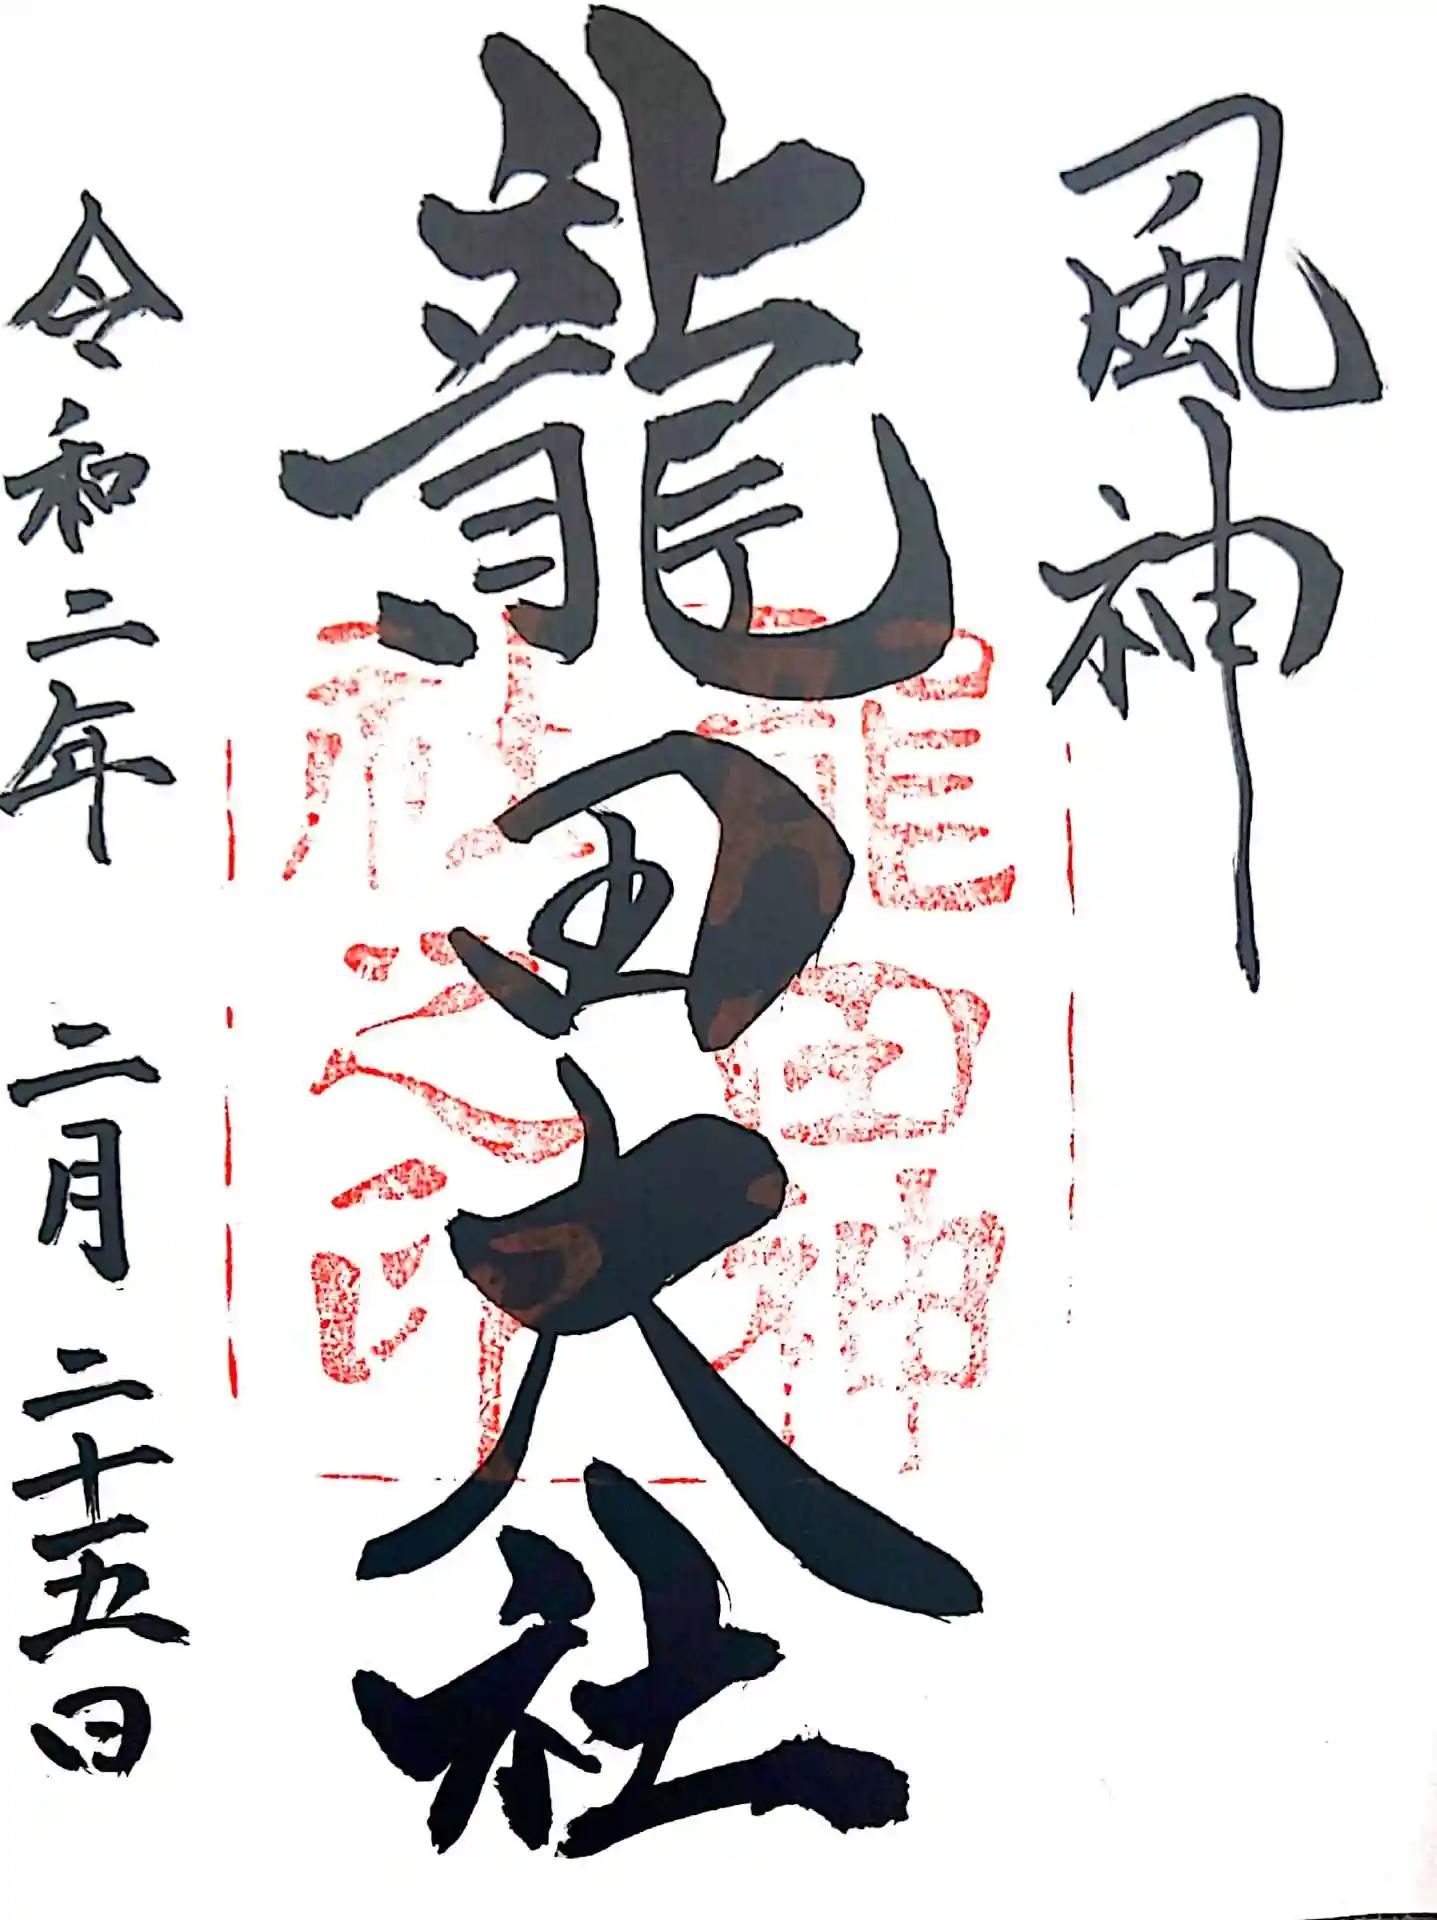 風神
龍田大社
龍田神
社之印
令和二年 二月 二十五日